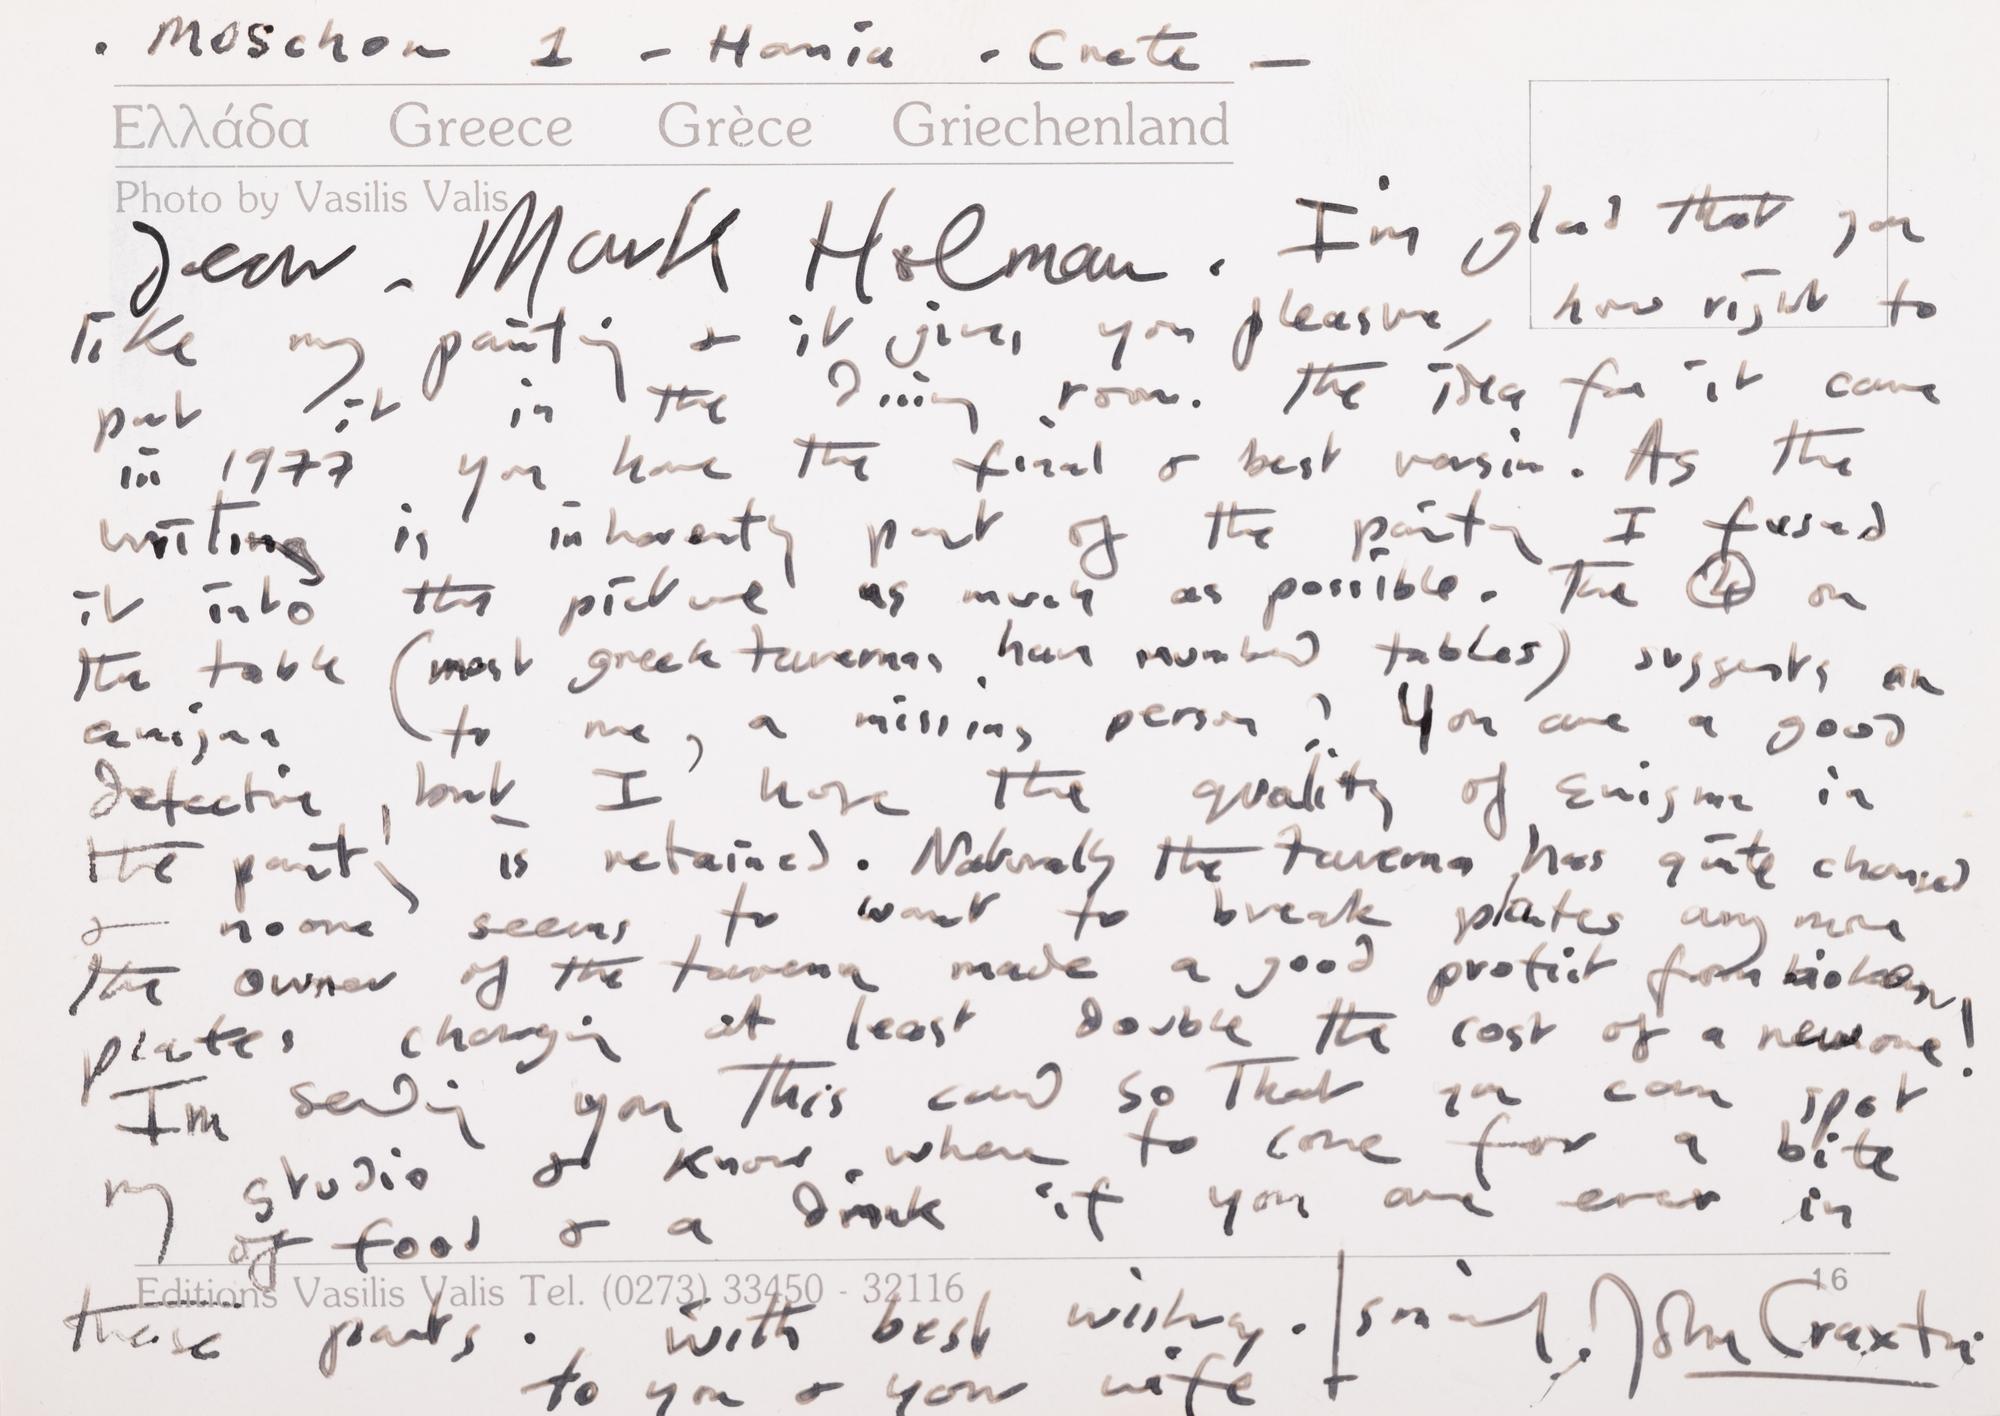 . Moschon 1 - Hania - Crete -
Ελλάδα Greece Grèce Griechenland
Photo by Vasilis Valis
Dear - Mark Holman. I'm glad that you
like my painting & it gives you pleasure, how right to
put it in the dining room. The idea for it came
in 1977 you have the final & best version. As the
writing is inherently part of the painting I fused
it into the picture as much as possible. The ④ on
the table (most greek tavernas have numbered tables) suggests an
enigma (to me, a missing person? You are a good
detective, but I hope the quality of Enigma in
the painting is retained. Naturally the taverna has quite changed
& noone seems to want to break plates any more
the owner of the taverna made a good profit from broken
plates charging at least double the cost of a new one!
Im sending you this card so that you can spot
my studio & know where to come for a bite
of food & a drink if you are ever in
Editions Vasilis Valis Tel. (0273) 33450 - 32116
16
these parts. with best wishes. John Craxton
to you & your wife